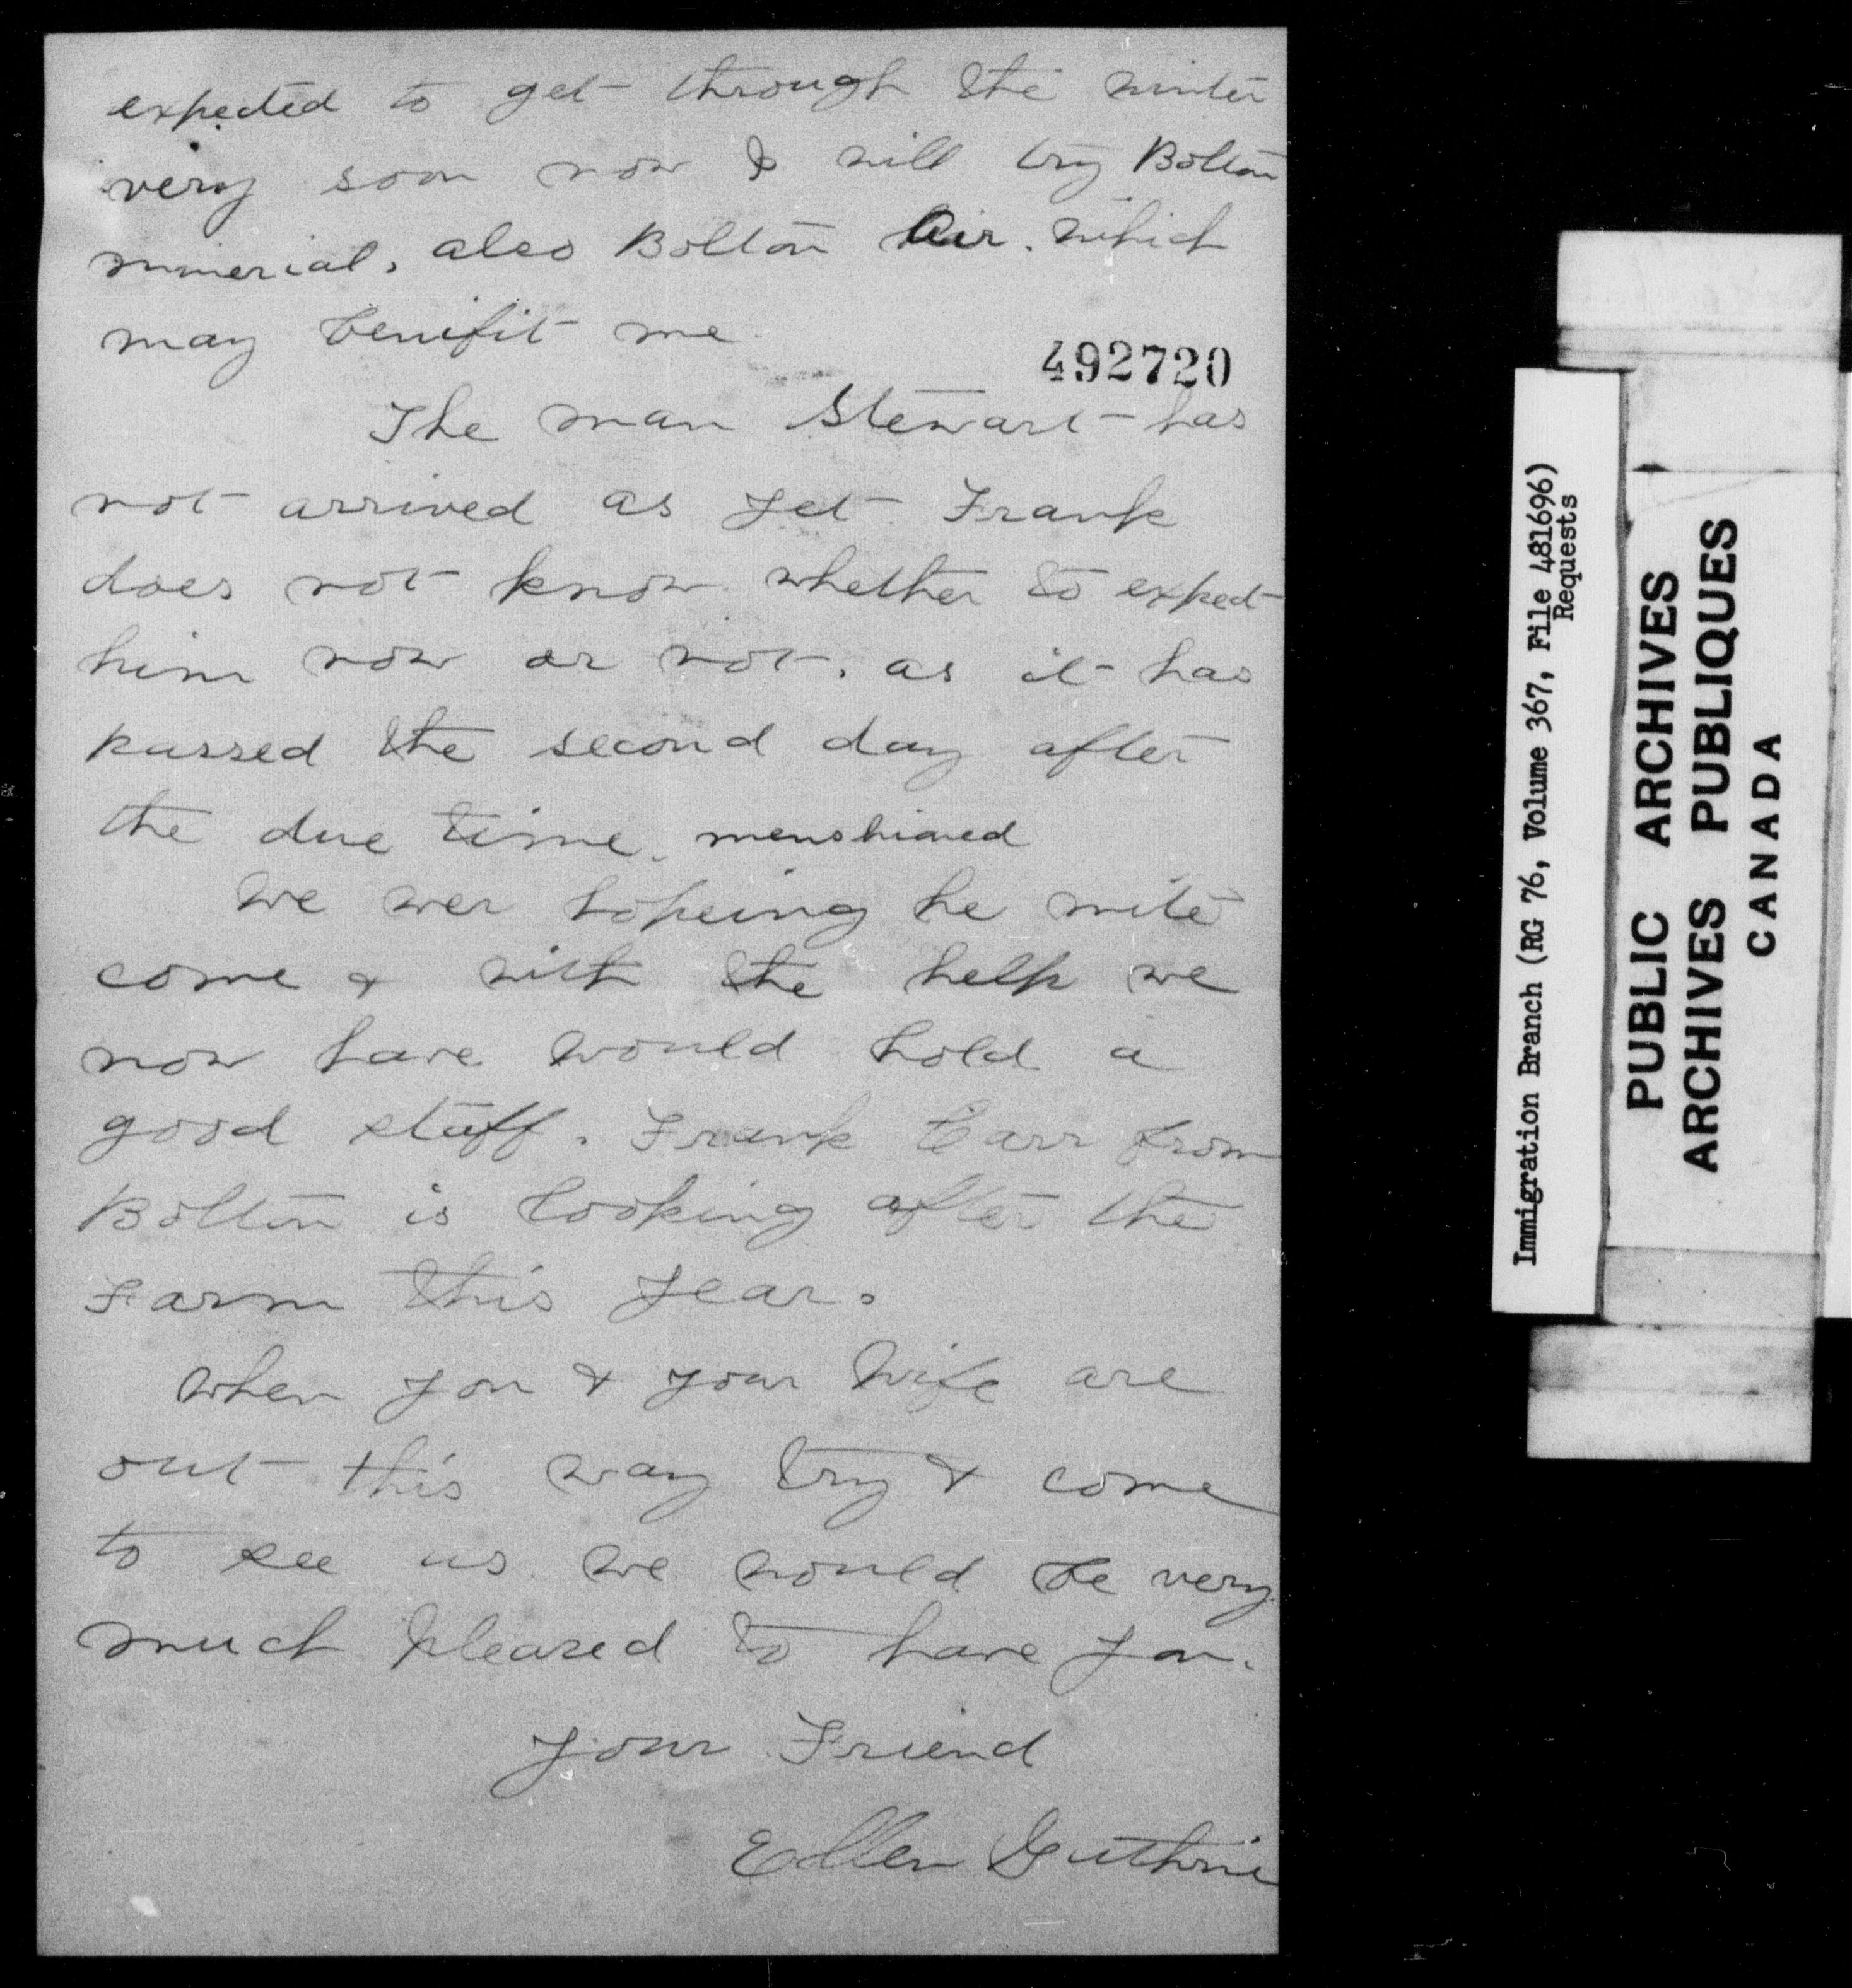 expected to get through the winter
very soon now I will try Bolton
minerial, also Bolton Air. which
may benifit me
492720
The man Stewart has
not arrived as yet Frank
does not know whether to expect
him now or not. as it has
passed the second day after
the due time. menshioned
We wer hopeing he mite
come & with the help we
now have would hold a
good staff. Frank Carr from
Bolton is looking after the
Farm this year.
When you & your wife are
out this way try & come
to see us we would be very
much pleased to have you.
your Friend
Ellen Guthrie
Immigration Branch (RG 76, Volume 367, File 481696)
Requests
PUBLIC ARCHIVES
ARCHIVES PUBLIQUES
CANADA